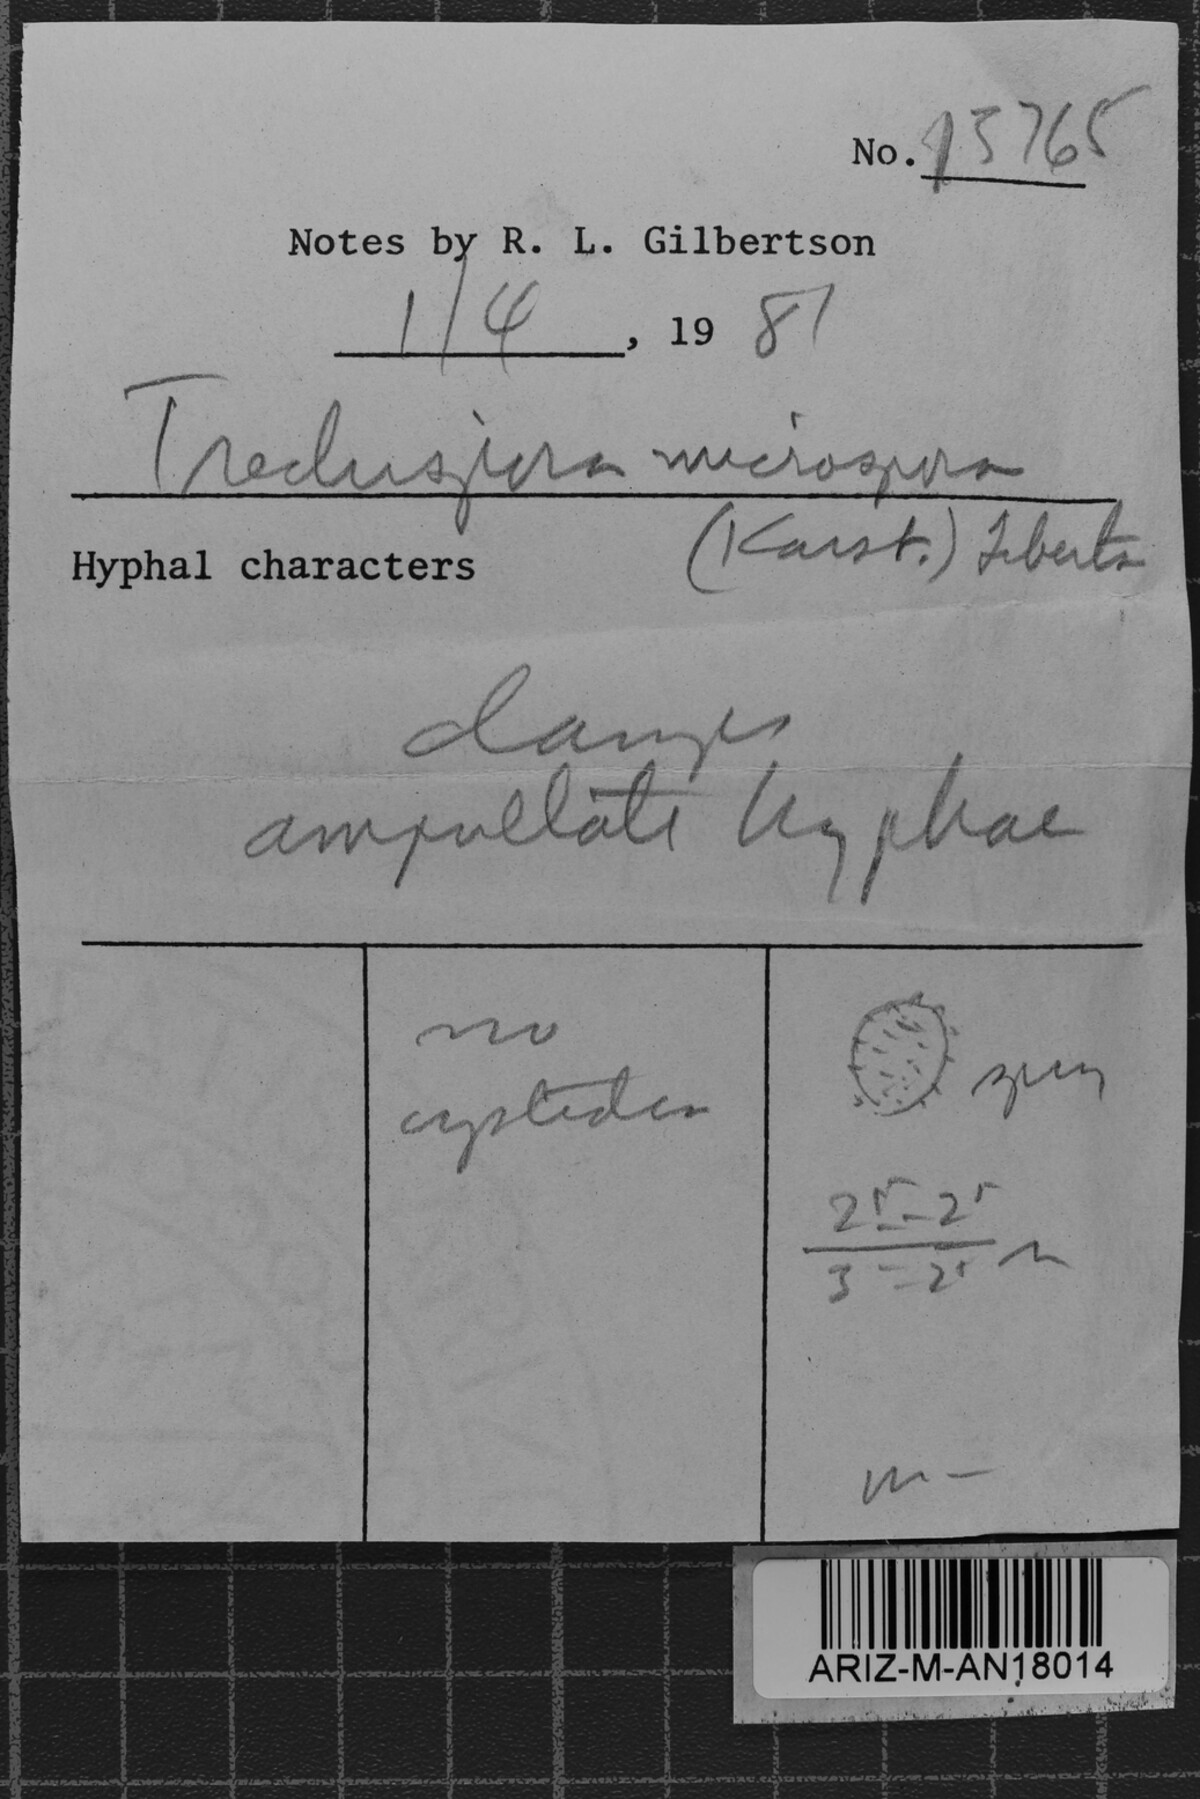 No. 13765
Notes by R. L. Gilbertson
1/4, 19 81
Trechispora microspora
(Karst.) Liberta
Hyphal characters
clamps
ampullate hyphae
no
cystidia
spiny
3
m -
ARIZ-M-AN18014